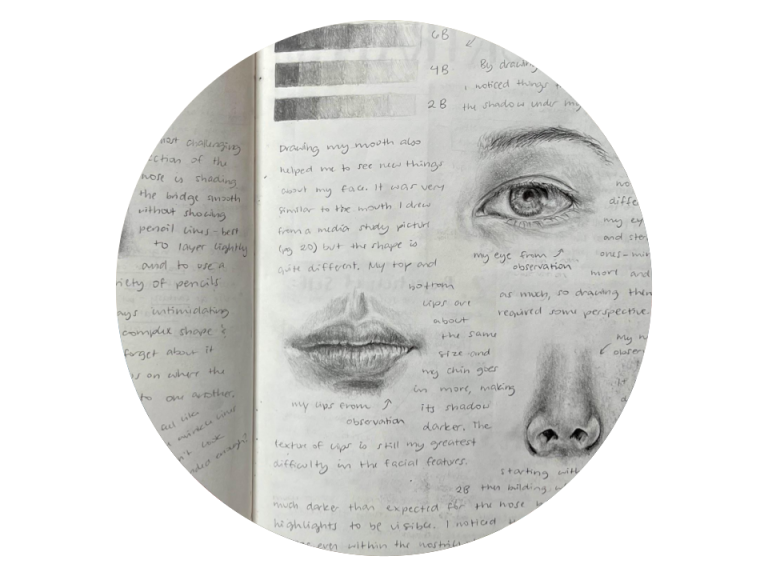 most challenging
section of the
nose is shading
the bridge smooth
without showing
pencil lines - best
to layer lightly
and to use a
riety of pencils
ays intimidating
complex shape &
forget about it
is on where the
to one another.
all like
muscle lines
n't look
enough?
6B
4B
2B
By drawing
I noticed things
the shadow under my
Drawing my mouth also
helped me to see new things
about my face. It was very
similar to the mouth I drew
from a media study picture
(pg 20) but the shape is
quite different. My top and
bottom
lips are
about
the same
size and
my chin goes
in more, making
its shadow
darker. The
textur of lips is still my greatest
difficulty in the facial features.
my lips from
observation
my eye from
observation
no
differ
my ey
and ste
ones - mi
more and
as much, so drawing them
required some perspective.
My n
observ
starting with
2B then building
much darker than expected for the nose
highlights to be visible. I noticed
even within the nostrils